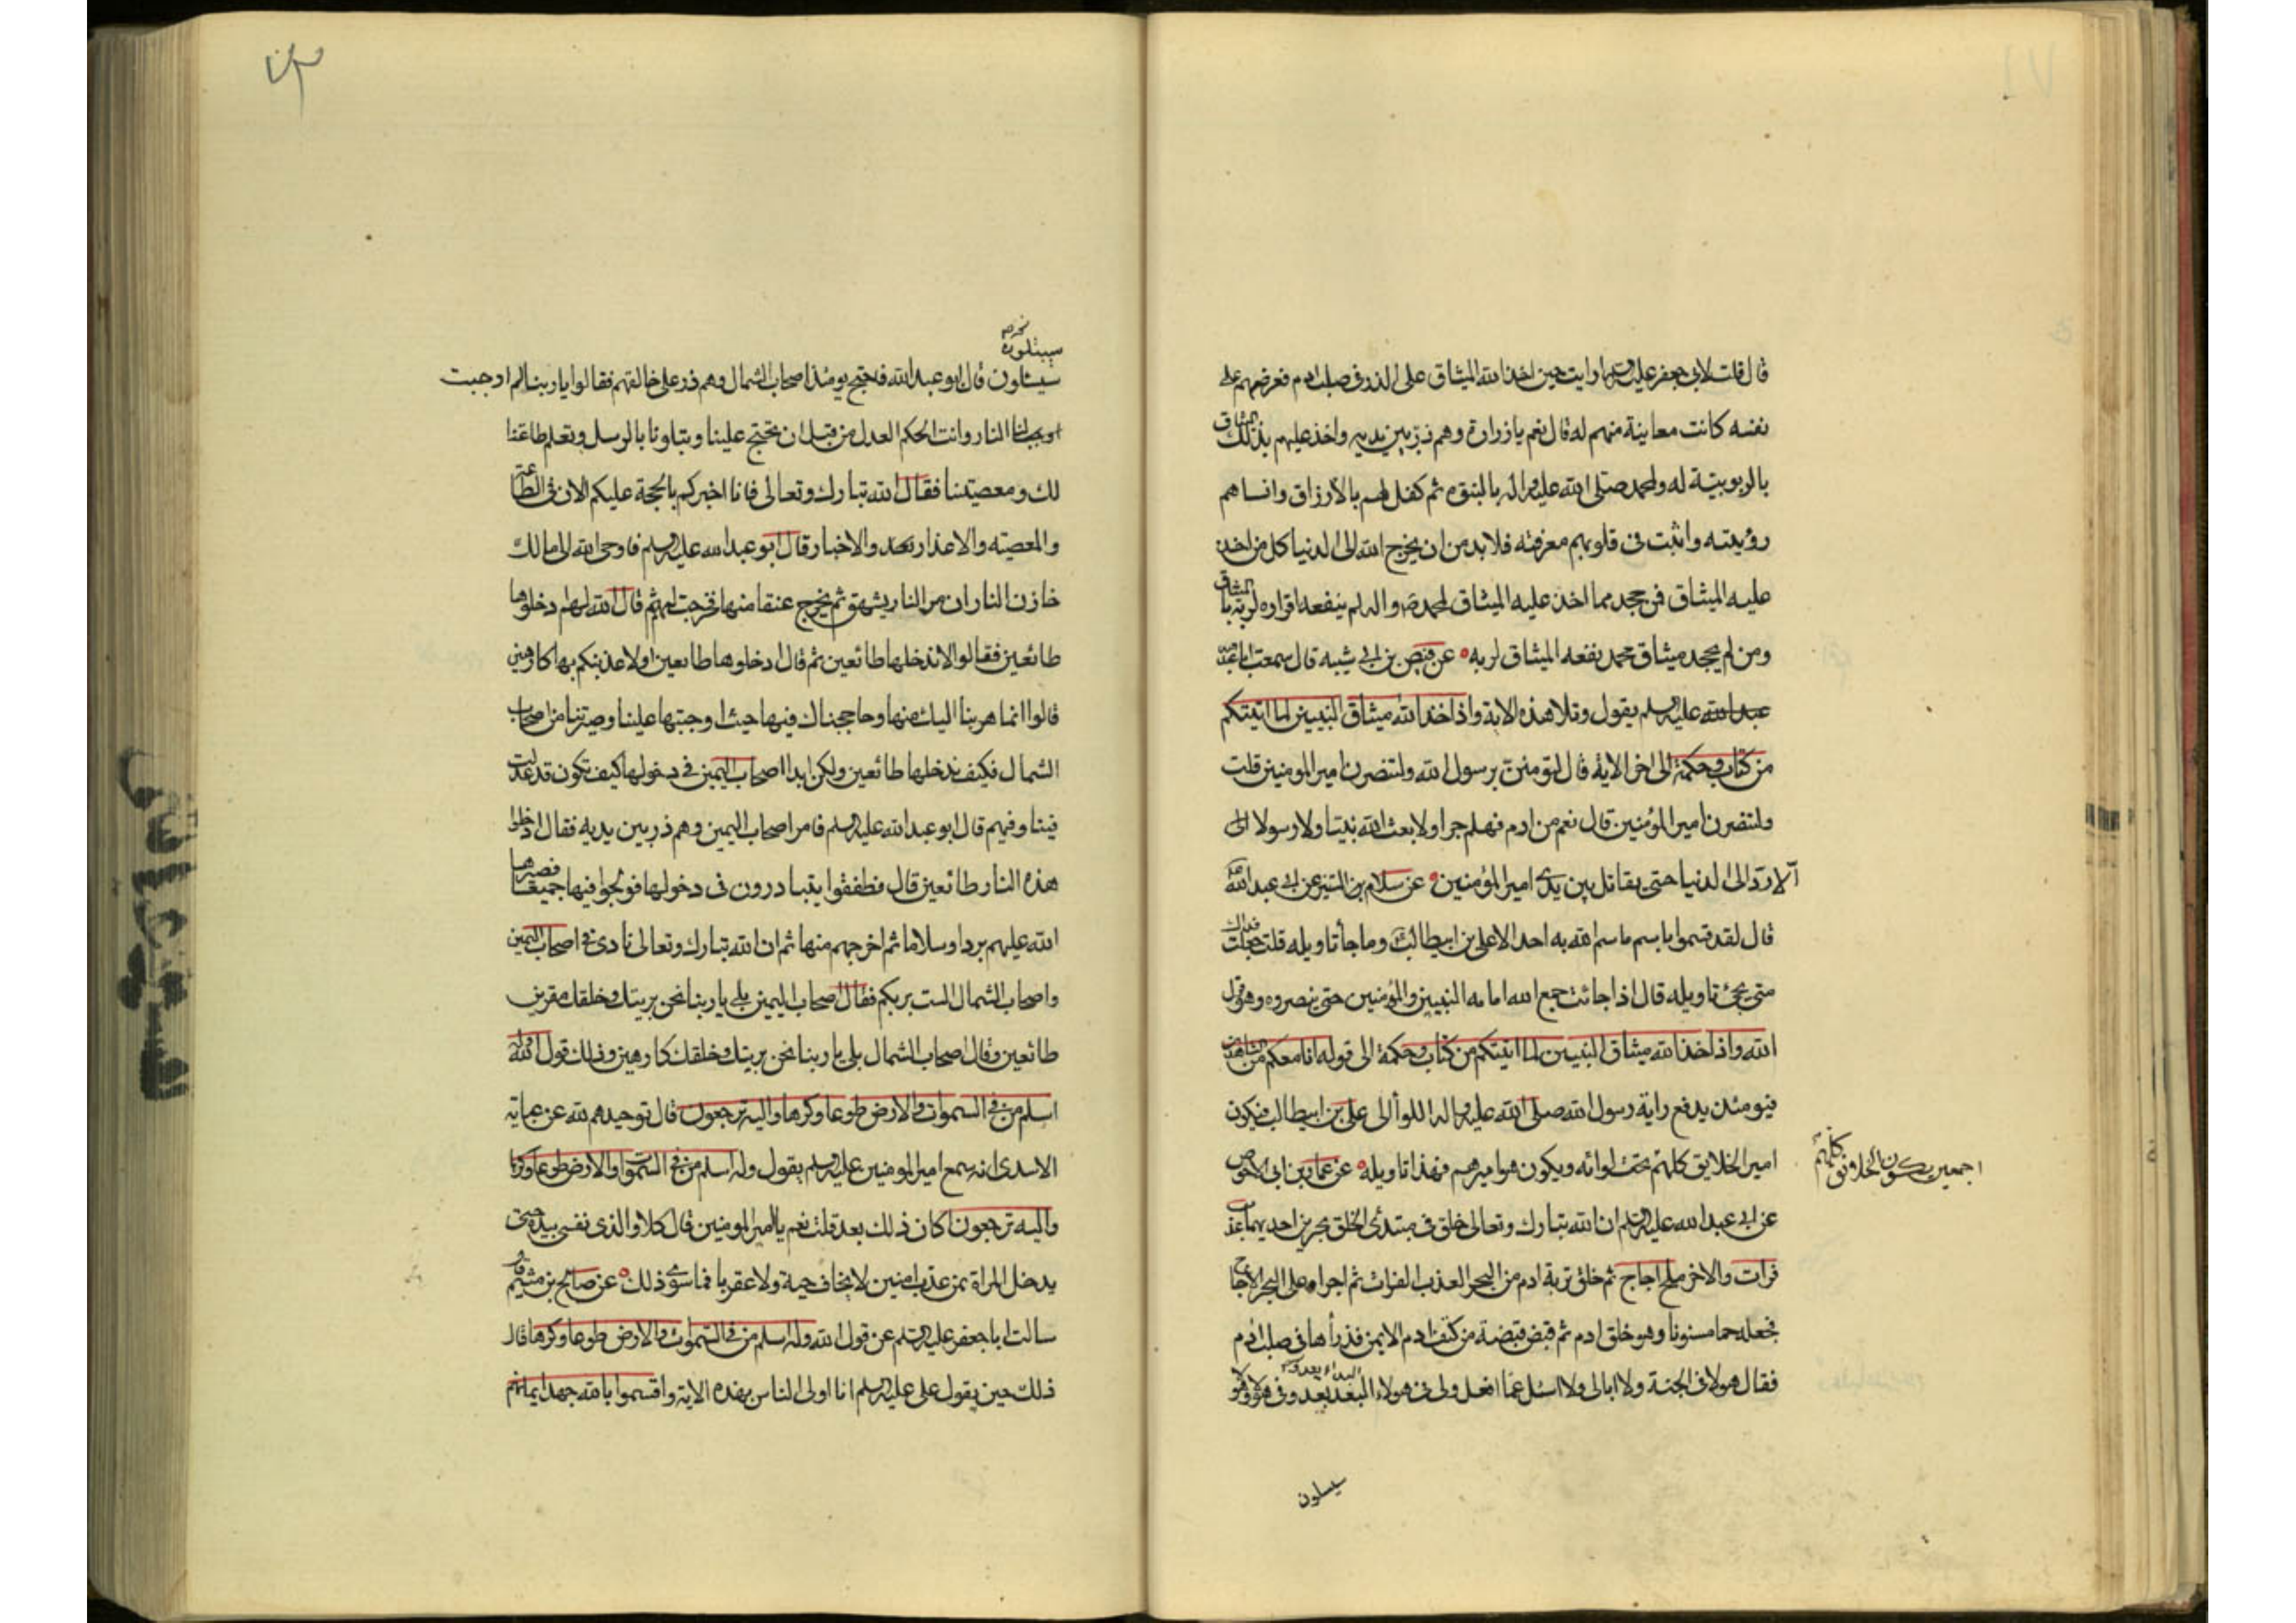 قال قلت لابى جعفر عليه السلم ارايت حين اخذ الله الميثاق على الذر فى صلب ادم فعرضهم على
نفسه كانت معاينة منهم له قال نعم يا زرارة وهم ذر بين يديه واخذ عليهم بذلك الميثاق
بالربوبية له ولمحمد صلى الله عليه واله بالنبوه ثم كفل لهم بالارزاق وانساهم
رؤيته واثبت فى قلوبهم معرفته فلا بد من ان يخرج الله الى الدنيا كل من اخذ
عليه الميثاق فمن جحد مما اخذ عليه الميثاق لمحمد ص واله لم ينفعه اقراره لربه بالميثاق
ومن لم يجحد ميثاق محمد نفعه الميثاق لربه عن فيض بن ابى شيبه قال سمعت ابا عبد الله
عبد الله عليه السلم يقول وتلا هذه الاية واذ اخذ الله ميثاق النبيين لما اتيتكم
من كتاب وحكمة الى اخر الاية قال لتؤمنن برسول الله ولتنصرن امير المومنين قلت
ولتنصرن امير المؤمنين قال نعم من ادم فهلم جرا ولا بعث الله نبيا ولا رسولا الى
الا رد الى الدنيا حتى يقاتل بين يدى امير المؤمنين عن سلام بن المستنير عن ابى عبد الله
قال لقد تسموا باسم ما سم الله به احد الا على بن ابيطالب وما جأ تاويله قلت جعلت فداك
متى يجئ تاويله قال اذا جائت جمع الله امامه النبيين والمؤمنين حتى ينصروه وهو قول
الله واذ اخذ الله ميثاق النبيين لما اتيتكم من كتاب وحكمة الى قوله انا معكم من الشاهدين
فيومئذ يدفع راية رسول الله صلى الله عليه واله اللوأ الى على بن ابيطالب فيكون
امير الخلايق كلهم تحت لوائه ويكون هو اميرهم فهذا تاويله عن عمار بن ابى الاحوص
اجمعين يكون الخلائق كلهم
عن ابى عبد الله عليه السلم ان الله تبارك وتعالى خلق فى مبتدئ الخلق بحرين احديهما عذب
فرات والاخر ملح اجاج ثم خلق تربة ادم من البحر العذب الفرات ثم اجراه على البحر الاجاج
فجعله حما مسنونا وهو خلق ادم ثم قبض قبضة من كتف ادم الايمن فذرأها فى صلب ادم
فقال هولاء فى الجنة ولا ابالى ولا اسئل عما افعل ولى فى هولاء البعد بعد وفى هؤلاء وهولاء
سيسلون
سيئلون
سيئلون قال ابو عبد الله فاحتج يومئذ اصحاب الشمال وهم ذر على خالقهم فقالوا يا ربنا لم اوجبت
لنا النار وانت الحكم العدل من قبل ان تحتج علينا وتبلونا بالرسل وتعلم طاعتنا
لك ومعصيتنا فقال الله تبارك وتعالى فانا اخبركم بالحجة عليكم الان فى الطاعة
والمعصيه والاعذار بعد والاخبار قال ابو عبد الله عليه السلم فاوحى الله الى مالك
خازن النار ان مر النار يشهق ثم يخرج عنقا منها فخرجت لهم ثم قال الله لهم ادخلوها
طائعين فقالوا لا ندخلها طائعين ثم قال ادخلوها طايعين اولا عذبنكم بها كارهين
قالوا انما هربنا اليك منها وحاججناك فيها حيث اوجبتها علينا وصيرتنا من اصحاب
الشمال فكيف ندخلها طائعين ولكن ابدا اصحاب اليمين فى دخولها كيف تكون قد عدلت
فينا وفيهم قال ابو عبد الله عليه السلم فامر اصحاب اليمين وهم ذر بين يديه فقال ادخلوا
هذه النار طائعين قال فطفقوا يتبادرون فى دخولها فولجوا فيها جميعا فصيرها
الله عليهم بردا وسلاما ثم اخرجهم منها ثم ان الله تبارك وتعالى نادى فى اصحاب اليمين
واصحاب الشمال الست بربكم فقال اصحاب اليمين بلى يا ربنا نحن بريتك وخلقك مقرين
طائعين وقال اصحاب الشمال بلى يا ربنا نحن بريتك وخلقك كارهين وذلك قول الله وله
اسلم من فى السموات والارض طوعا وكرها واليه ترجعون قال توحيدهم لله عن عباية
الاسدى انه سمع امير المومنين عليه السلم يقول وله اسلم من فى السموات والارض طوعا وكرها
واليه ترجعون اكان ذلك بعد قلت نعم يا امير المومنين قال كلا والذى نفسى بيده حتى
يدخل المراة بمن عذب امنين لا يخاف حية ولا عقربا فما سوى ذلك عن صالح بن ميثم قال
سالت ابا جعفر عليه السلم عن قول الله وله اسلم من فى السموات والارض طوعا وكرها قال
ذلك حين يقول على عليه السلم انا اولى الناس بهذه الاية واقسموا بالله جهد ايمانهم